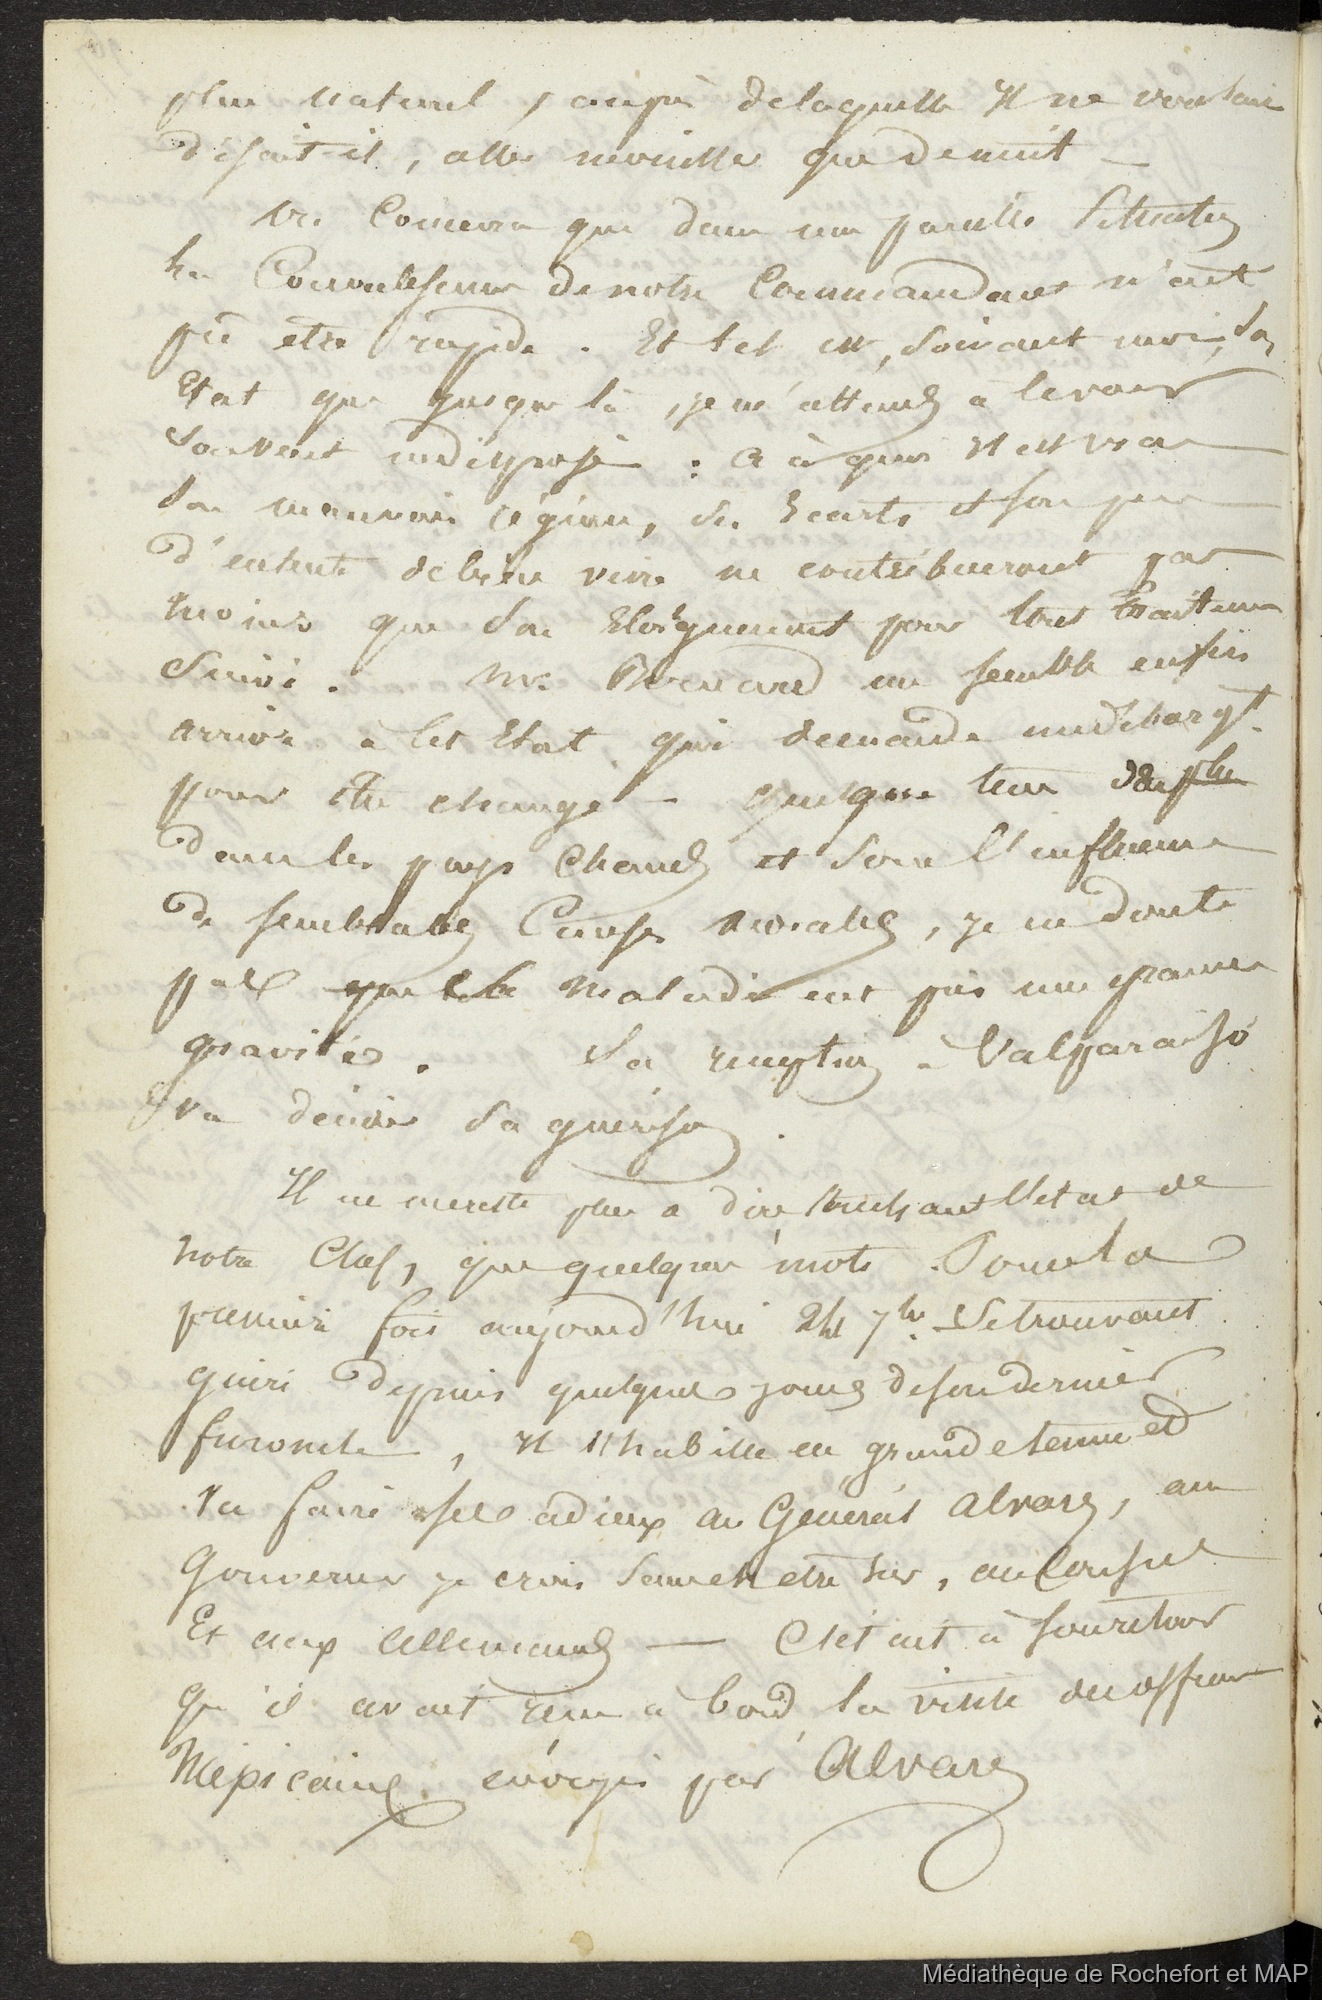 plus naturel, auprès delaquelle Il ne voulait
disait-il, aller mouiller que de nuit —
On Concevra que dans une pareille Situation
la Convalescence de notre Commandant n'ait
pû etre rapide. Et tel est, suivant moi, son
Etat que jusque là, je m'attends à le voir
Souvent indisposé : à quoi Il est vrai
Son mauvais régime, ses Ecarts et son peu
d'entente de bien vivre ne contribueront pas
moins que Son Eloignement pour tout traitement
Suivi. Mr. me semble enfin
arrivé à cet Etat qui demande un débarqt.
pour être changé — quelque tems de plus
dans les pays Chauds et Sous l'influence
de semblables Causes morales, je ne doute
pas que la maladie eut pris une grande
gravité. Sa reception à Valparaiso
va décider Sa guérison.
Il ne me reste plus à dire touchant l'etat de
notre Chef, que quelques mots. Pour la
premiere fois aujourd'hui 24 7bre. Se trouvant
guéri depuis quelques jours de son dernier
furoncle, Il s'habille en grande tenue et
va faire ses adieux au Général Alvarez, au
Gouverneur je crois Sans en etre sûr, au Consul
Et aux Allemands — C'était à son retour
qu'il avait reçu à bord la visite des officiers
Mexicains envoyés par Alvarez
Médiathèque de Rochefort et MAP